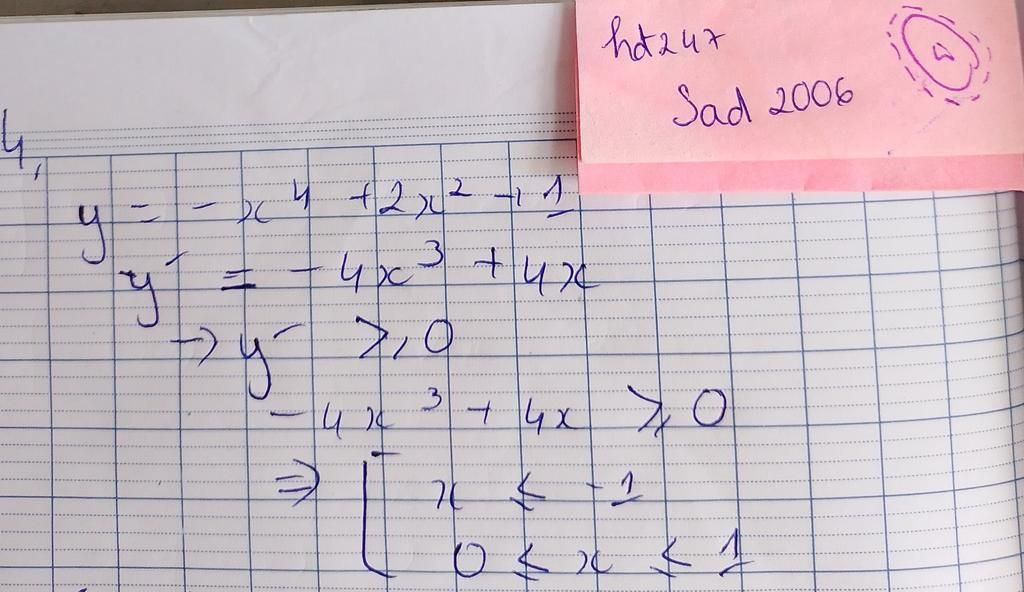 hdt247
Sad 2006
4,
y = - x⁴ + 2x² + 1
y' = - 4x³ + 4x
→ y' ≥ 0
- 4x³ + 4x ≥ 0
⇒ [ x ≤ -1
0 ≤ x ≤ 1